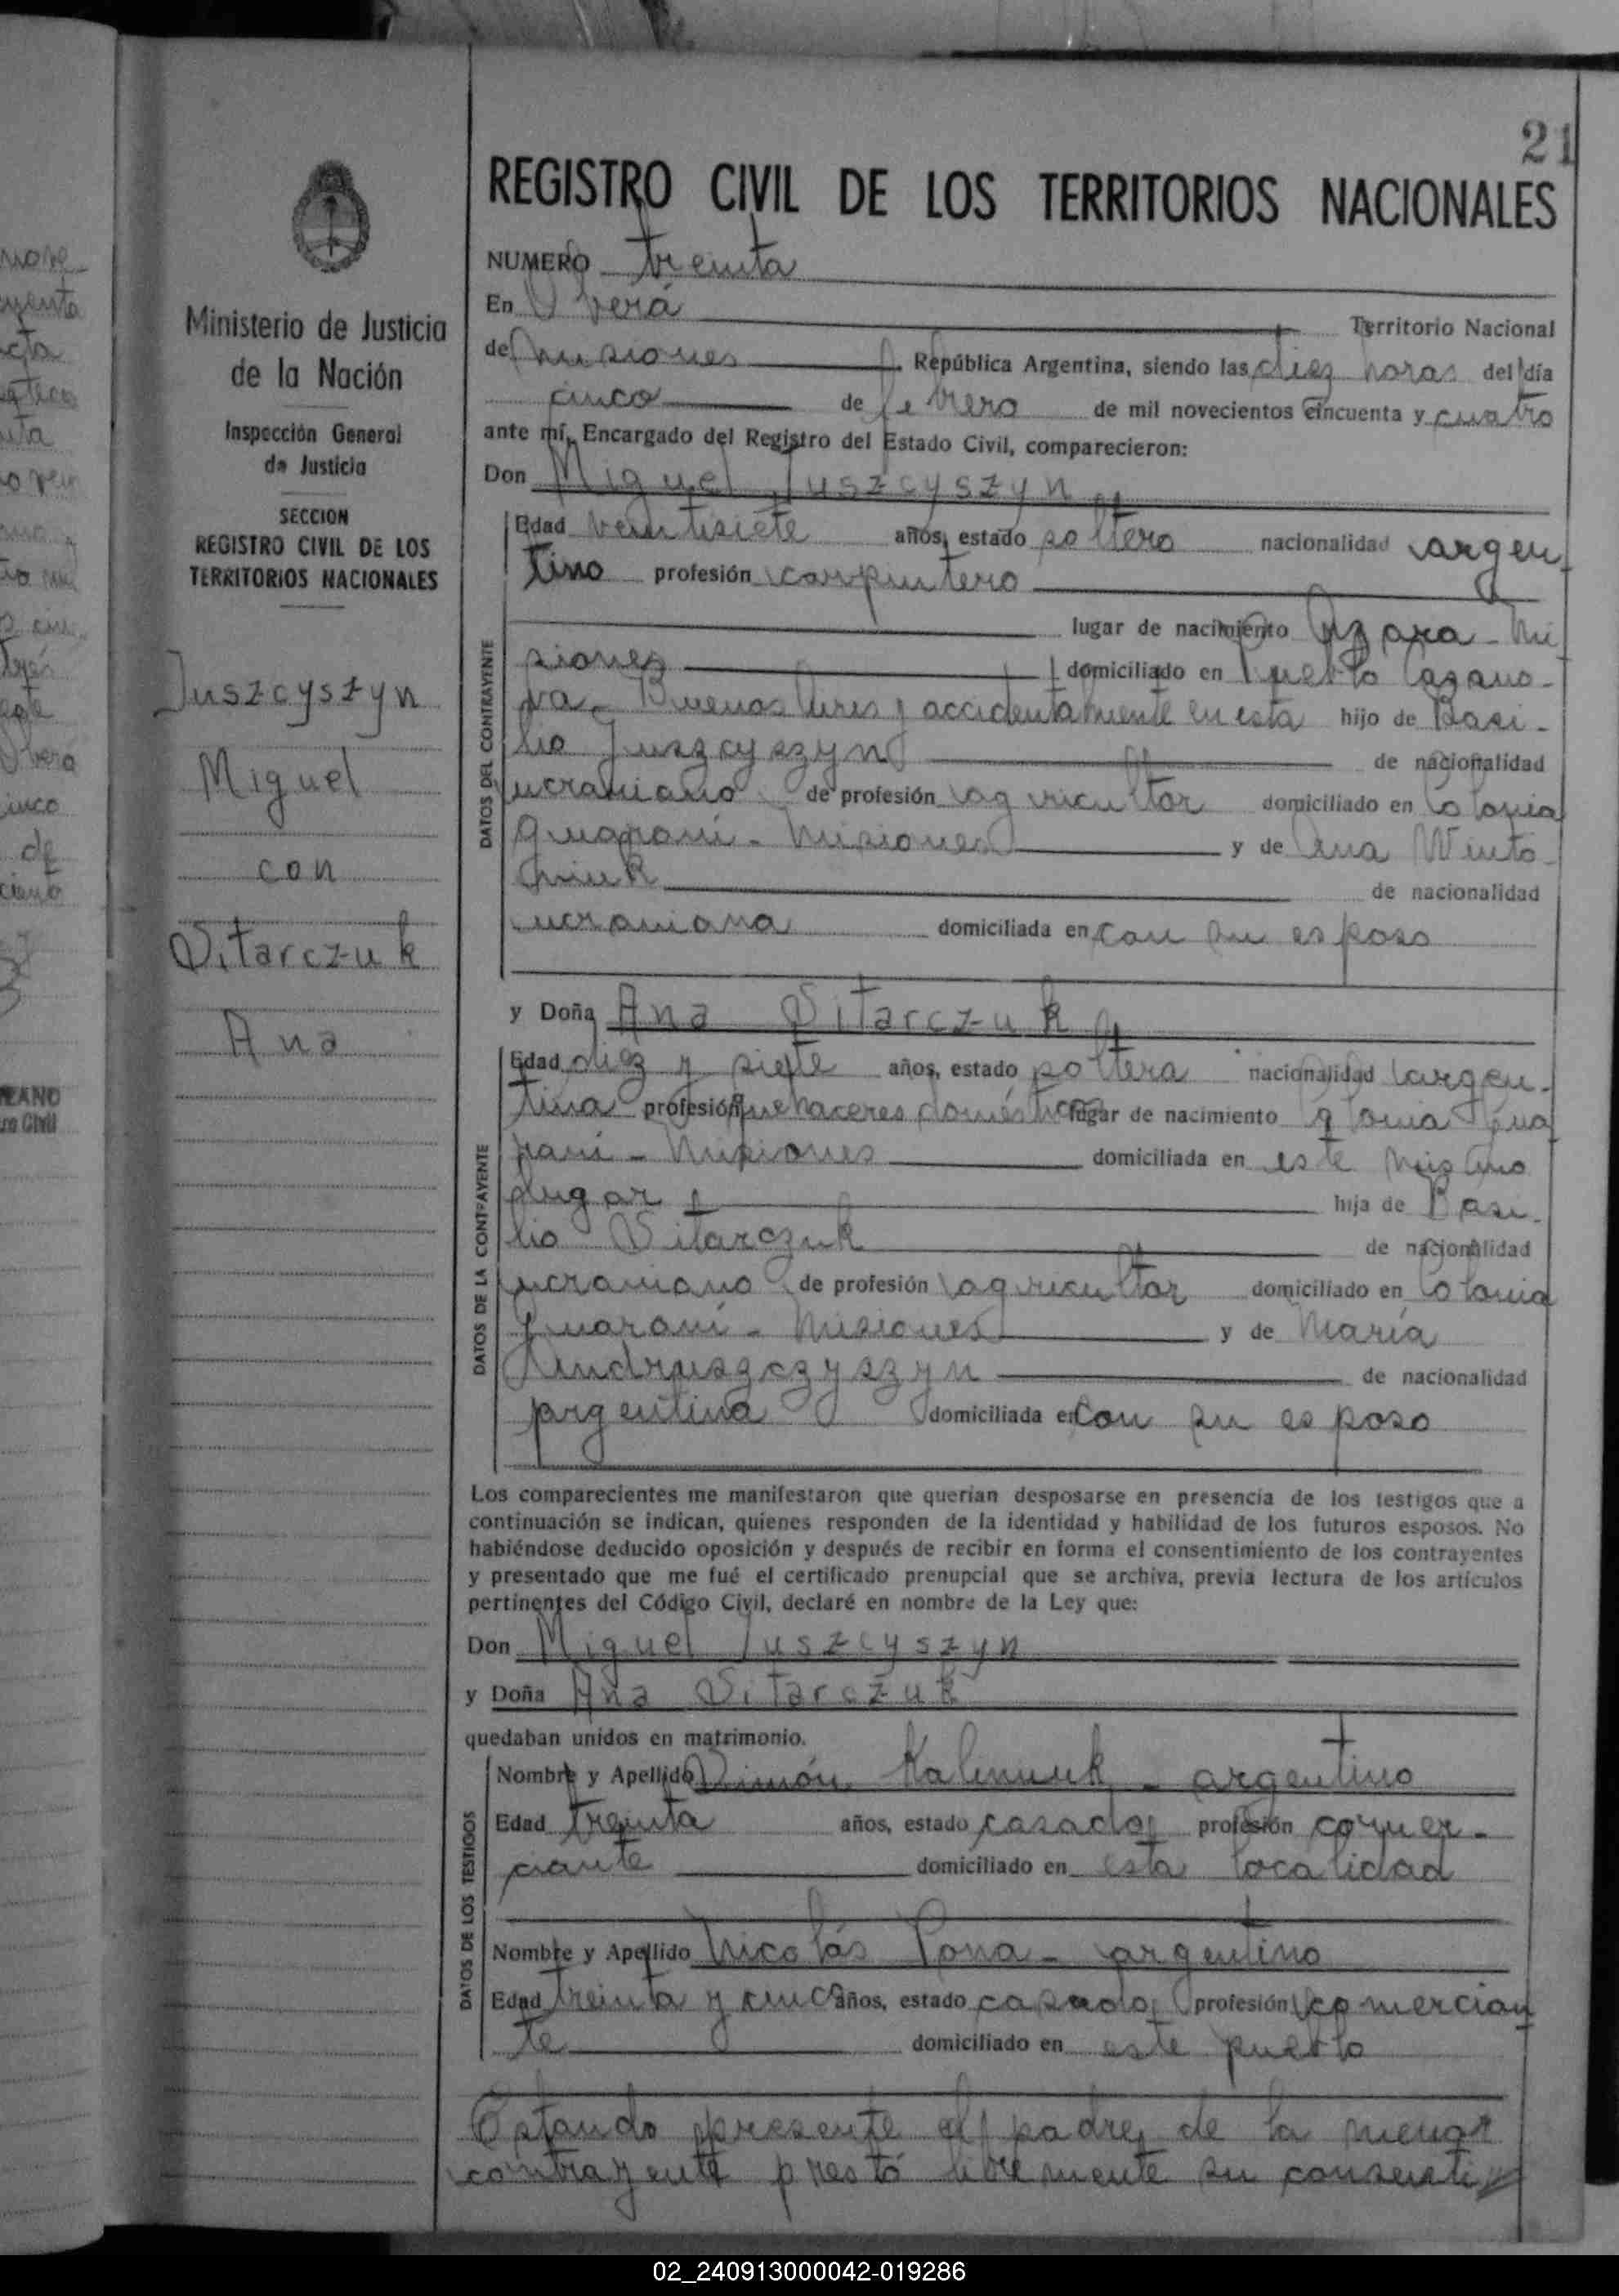 21
REGISTRO CIVIL DE LOS TERRITORIOS NACIONALES
Ministerio de Justicia
de la Nación
Inspección General
de Justicia
SECCION
REGISTRO CIVIL DE LOS
TERRITORIOS NACIONALES
Juszcyszyn
Miguel
con
Sitarczuk
Ana
NUMERO treinta
En Oberá Territorio Nacional
de Misiones República Argentina, siendo las diez horas del día
cinco de febrero de mil novecientos cincuenta y cuatro
ante mí, Encargado del Registro del Estado Civil, comparecieron:
Don Miguel Juszcyszyn
DATOS DEL CONTRAYENTE
Edad veintisiete años, estado soltero nacionalidad argen-
tino profesión carpintero
lugar de nacimiento Azara - Mi
siones domiciliado en pueblo Casano-
va - Buenos Aires y accidentalmente en esta hijo de Basi-
lio Juszcyszyn de nacionalidad
ucraniano de profesión agricultor domiciliado en Colonia
Guaraní - Misiones y de Ana
de nacionalidad
ucraniana domiciliada en con su esposo
y Doña Ana Sitarczuk
DATOS DE LA CONTRAYENTE
Edad diez y siete años, estado soltera nacionalidad argen-
tina profesión quehaceres domésticos lugar de nacimiento Colonia Gua
raní - Misiones domiciliada en este mismo
lugar hija de Basi-
lio Sitarczuk de nacionalidad
ucraniano de profesión agricultor domiciliado en Colonia
Guaraní - Misiones y de María
Andruszczyszyn de nacionalidad
argentina domiciliada en con su esposo
Los comparecientes me manifestaron que querían desposarse en presencia de los testigos que a
continuación se indican, quienes responden de la identidad y habilidad de los futuros esposos. No
habiéndose deducido oposición y después de recibir en forma el consentimiento de los contrayentes
y presentado que me fué el certificado prenupcial que se archiva, previa lectura de los artículos
pertinentes del Código Civil, declaré en nombre de la Ley que:
Don Miguel Juszcyszyn
y Doña Ana Sitarczuk
quedaban unidos en matrimonio.
DATOS DE LOS TESTIGOS
Nombre y Apellido Simón Kalinuk - argentino
Edad treinta años, estado casado profesión comer-
ciante domiciliado en esta localidad
Nombre y Apellido Nicolás Pona - argentino
Edad treinta y cinco años, estado casado profesión comercian
te domiciliado en este pueblo
Estando presente el padre de la menor
contrayente prestó libremente su consenti
02_240913000042-019286